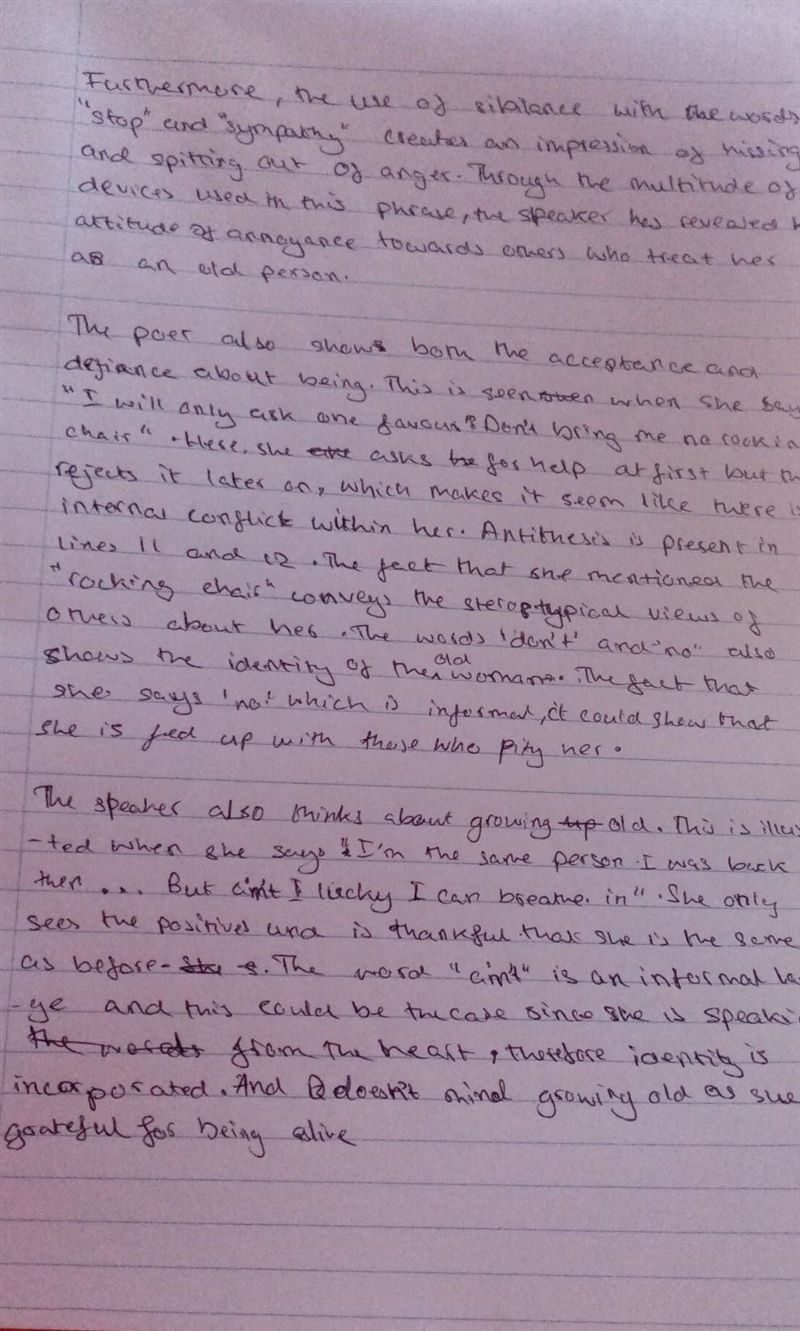 Furthermore, the use of sibilance with the words
"stop" and "sympathy" creates an impression of hissing
and spitting out of anger. Through the multitude of
devices used in this phrase, the speaker has revealed h
attitude of annoyance towards others who treat her
as an old person.
The poet also shows both the acceptance and
defiance about being. This is seen when she say
"I will only ask one favour? Don't bring me no rockin
chair". Here, she asks for help at first but th
rejects it later on, which makes it seem like there is
internal conflict within her. Antithesis is present in
lines 11 and 12. The fact that she mentioned the
"rocking chair" conveys the sterotypical views of
others about her. The words 'don't' and "no" also
shows the identity of the old woman. The fact that
she says 'no' which is informal, it could show that
she is fed up with those who pity her.
The speaker also thinks about growing up old. This is illus
-ted when she says "I'm the same person I was back
then ... But ain't I lucky I can breathe in". She only
sees the positives and is thankful that she is the same
as before. The word "ain't" is an informal la
-ge and this could be the case since she is speaki
the words from the heart, therefore identity is
incorporated. And doesn't mind growing old as she
grateful for being alive